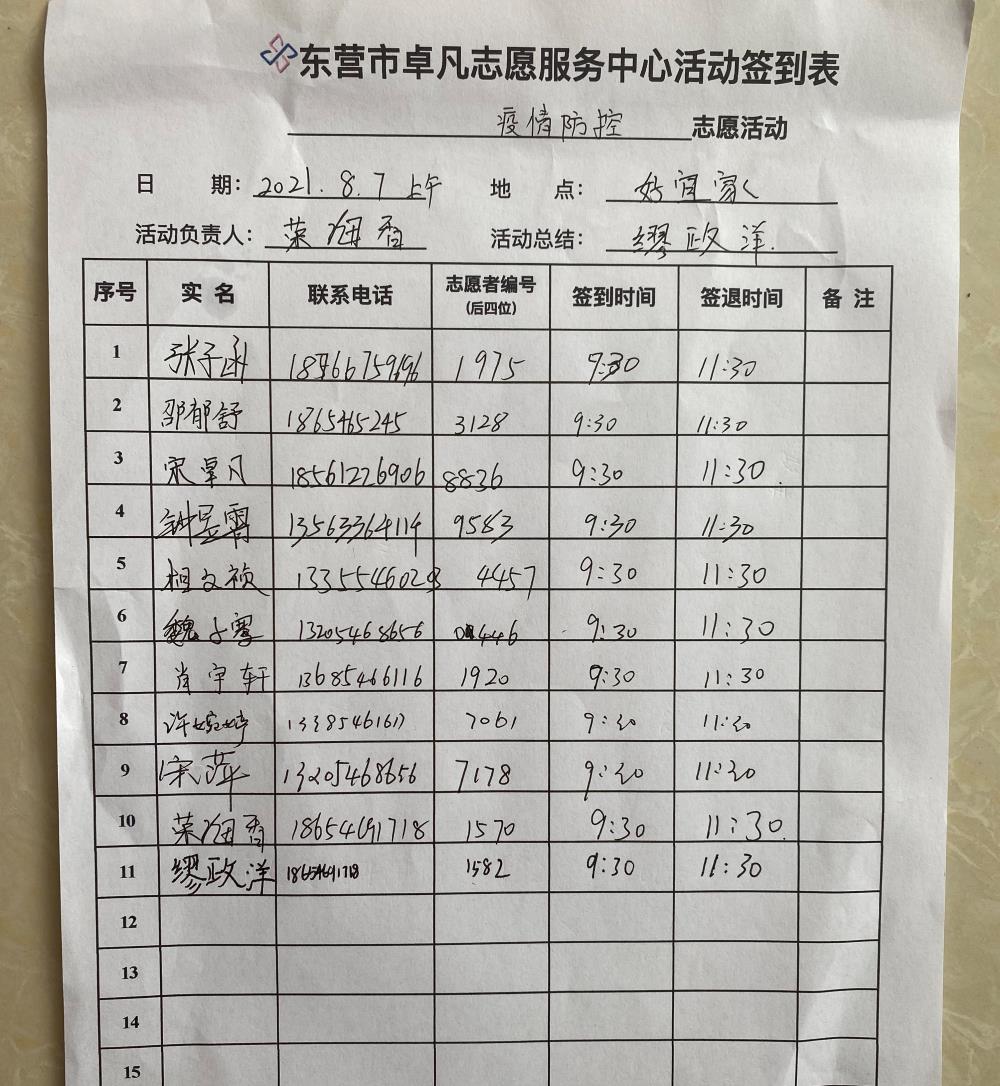 东营市卓凡志愿服务中心活动签到表
疫情防控 志愿活动
日 期: 2021.8.7 上午 地 点: 好宜家
活动负责人: 荣海香 活动总结: 缪政洋.
序号 实名 联系电话 志愿者编号(后四位) 签到时间 签退时间 备注
1 张子函 1975 9:30 11:30
2 邵郁舒 1865465245 3128 9:30 11:30
3 宋卓凡 18561226906 8836 9:30 11:30
4 13563364114 9583 9:30 11:30
5 相文祯 13355460293 4457 9:30 11:30
6 魏子雯 13205468656 446 9:30 11:30
7 肖宇轩 13685466116 1920 9:30 11:30
8 许婉婷 7061 9:30 11:30
9 宋萍 13205468656 7178 9:30 11:30
10 荣海香 18654691718 1570 9:30 11:30
11 缪政洋 18654691718 1582 9:30 11:30
12
13
14
15